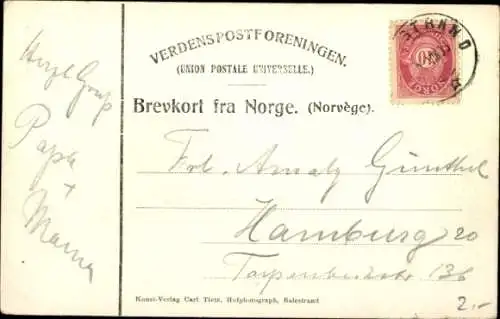 VERDENSPOSTFORENINGEN.
(UNION POSTALE UNIVERSELLE.)
Brevkort fra Norge. (Norvège).
Herzl. Gruß
Papa
+
Mama
Frl. Amaly Günthel
Hamburg 20
13b
Kunst-Verlag Carl Tietz, Hofphotograph, Balestrand
2.-